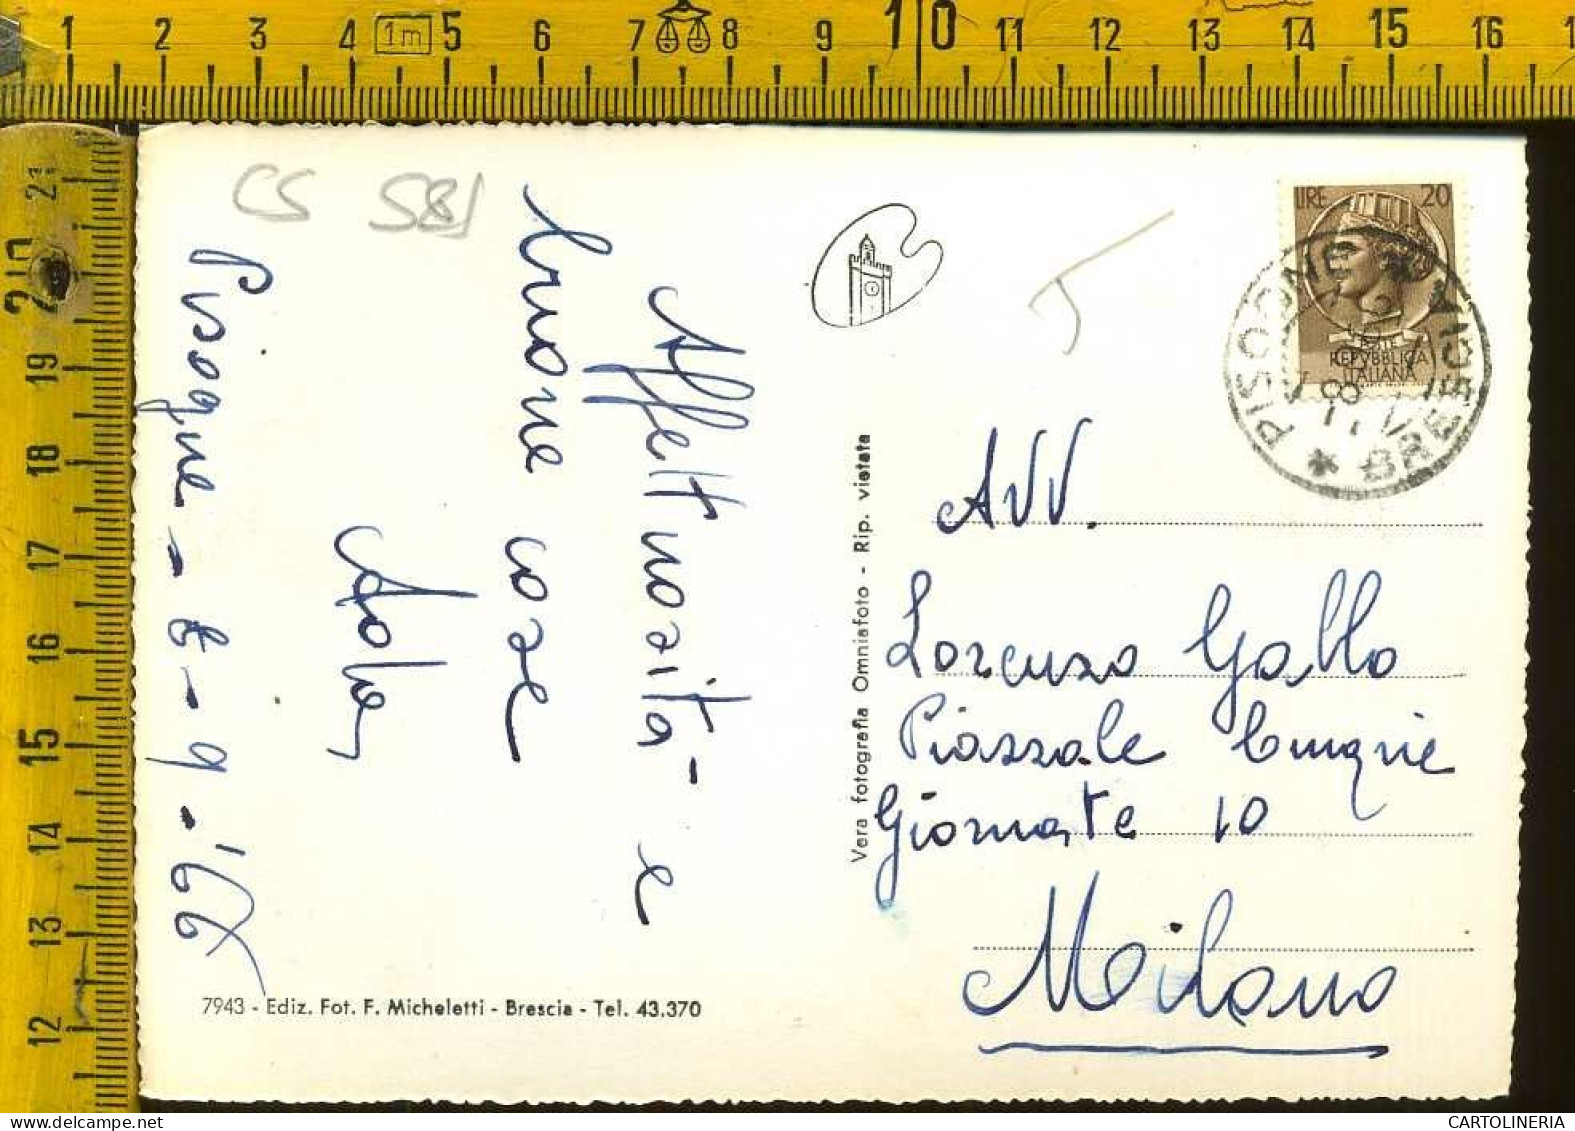 1 2 3 4 1m 5 6 7 8 9 10 11 12 13 14 15 16
21
20
19
18
17
16
15
14
13
12
CS 581
Pisogne - 8 - 9 - '66
Affettuosità - e
buone cose
LIRE 20
REPVBBLICA
ITALIANA
PISOGNE
* BRESCIA
Avv.
Lorenzo Gallo
Piazzale Cinque
Giornate 10
Milano
Vera fotografia Omniafoto - Rip. vietata
7943 - Ediz. Fot. F. Micheletti - Brescia - Tel. 43.370
CARTOLINERIA